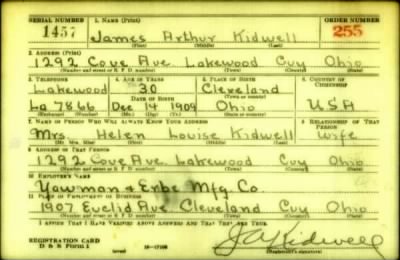 SERIAL NUMBER 1. NAME (Print) ORDER NUMBER
1457 James Arthur Kidwell 255
(First) (Middle) (Last)
2. ADDRESS (Print)
1292 Cove Ave. Lakewood Cuy Ohio
(Number and street or R. F. D. number) (Town) (County) (State)
3. TELEPHONE 4. AGE IN YEARS 5. PLACE OF BIRTH 6. COUNTRY OF CITIZENSHIP
Lakewood 30 Cleveland
DATE OF BIRTH (Town or county)
La 7866 Dec 14 1909 Ohio USA
(Exchange) (Number) (Mo.) (Day) (Yr.) (State or country)
7. NAME OF PERSON WHO WILL ALWAYS KNOW YOUR ADDRESS 8. RELATIONSHIP OF THAT PERSON
Mrs. Helen Louise Kidwell Wife
(Mr., Mrs., Miss) (First) (Middle) (Last)
9. ADDRESS OF THAT PERSON
1292 Cove Ave. Lakewood Cuy Ohio
(Number and street or R. F. D. number) (Town) (County) (State)
10. EMPLOYER'S NAME
Yawman & Erbe Mfg. Co.
11. PLACE OF EMPLOYMENT OR BUSINESS
1907 Euclid Ave. Cleveland Cuy Ohio
(Number and street or R. F. D. number) (Town) (County) (State)
I AFFIRM THAT I HAVE VERIFIED ABOVE ANSWERS AND THAT THEY ARE TRUE.
REGISTRATION CARD J A Kidwell
D. S. S. Form 1 (Registrant's signature)